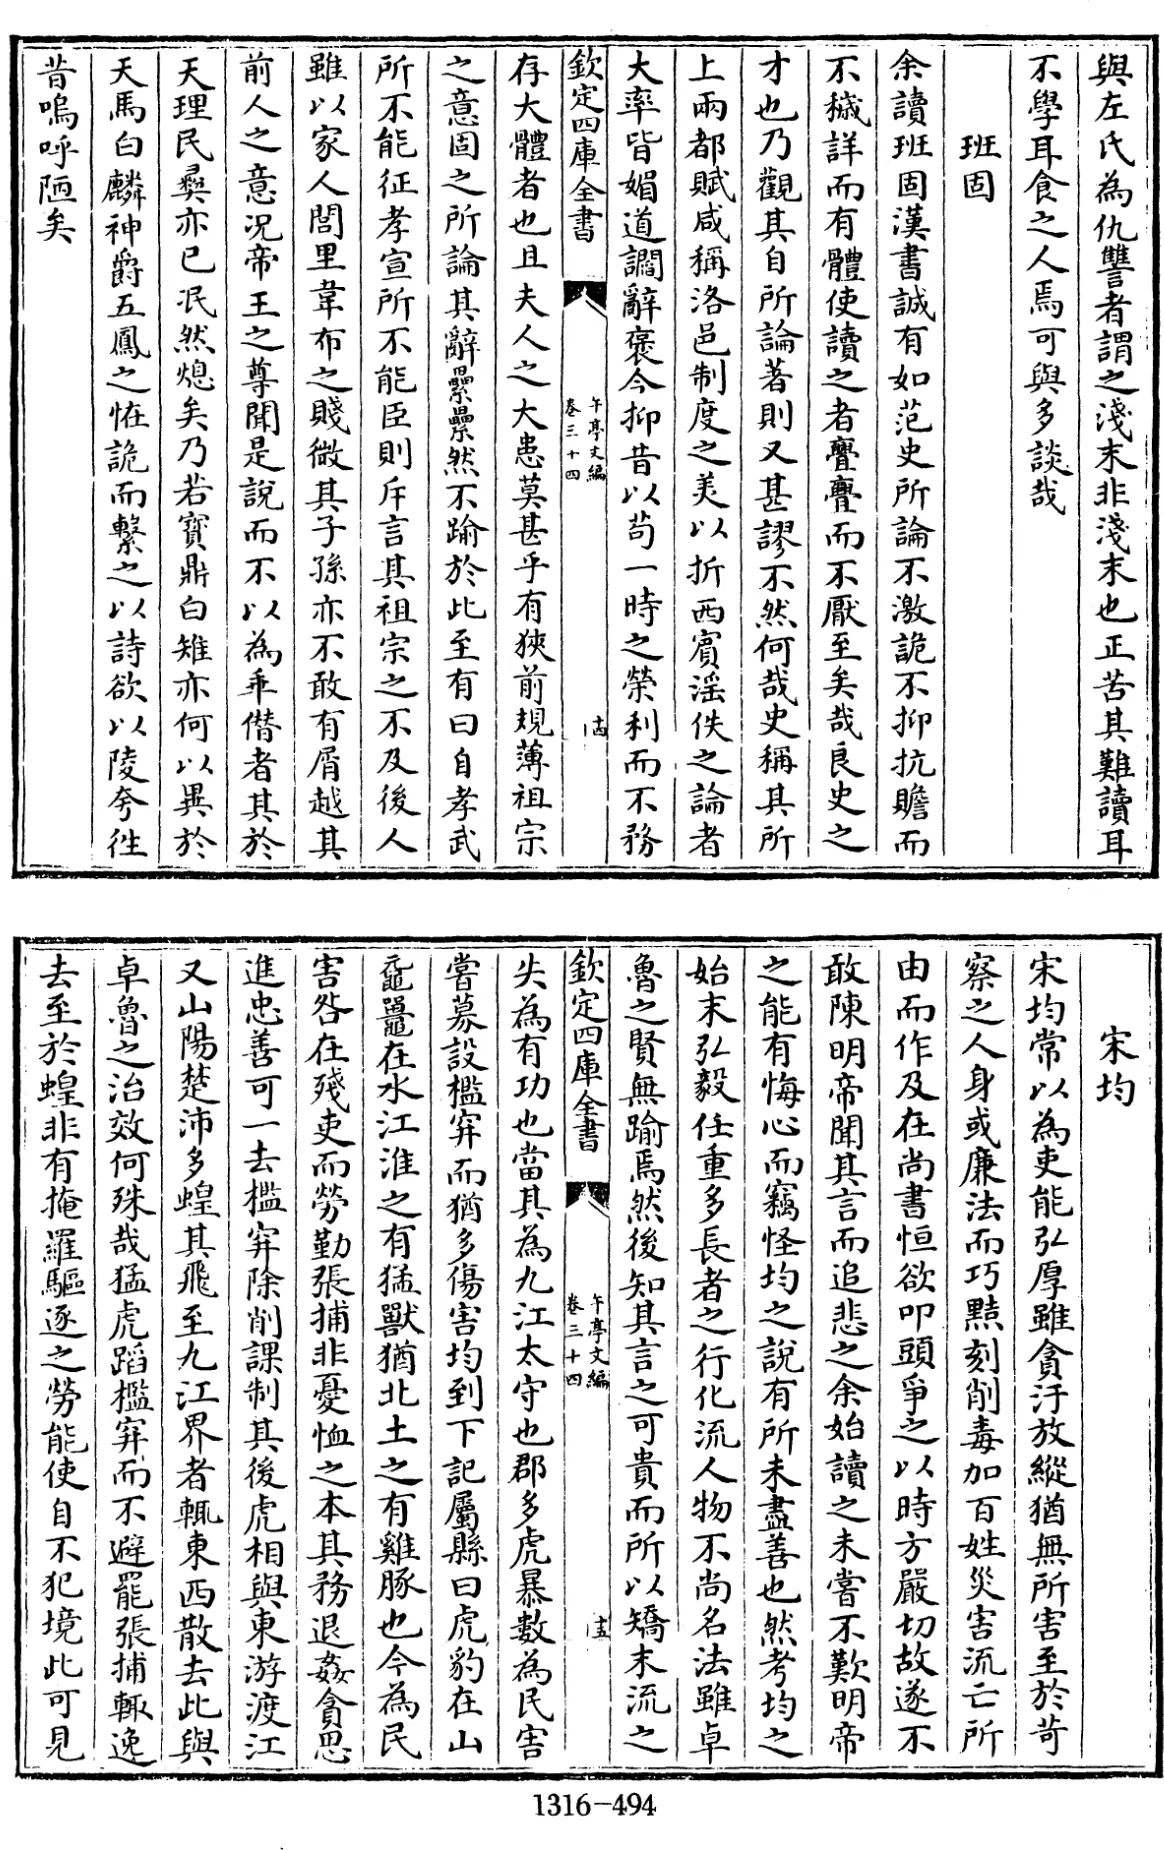 與左氏為仇讐者謂之淺末非淺末也正苦其難讀耳
不學耳食之人焉可與多談哉
班固
余讀班固漢書誠有如范史所論不激詭不抑抗贍而
不穢詳而有體使讀之者亹亹而不厭至矣哉良史之
才也乃觀其自所論著則又甚謬不然何哉史稱其所
上兩都賦咸稱洛邑制度之美以折西賓滛佚之論者
大率皆媚道讕辭褒今抑昔以苟一時之榮利而不務
欽定四庫全書
午亭文編
卷三十四
十四
存大體者也且夫人之大患莫甚乎有狹前規薄祖宗
之意固之所論其辭纍纍然不踰於此至有曰自孝武
所不能征孝宣所不能臣則斥言其祖宗之不及後人
雖以家人閭里韋布之賤微其子孫亦不敢有屑越其
前人之意况帝王之尊聞是說而不以為乖僭者其於
天理民彛亦已泯然熄矣乃若寳鼎白雉亦何以異於
天馬白麟神爵五鳳之恠詭而繫之以詩欲以陵夸徃
昔嗚呼陋矣
宋均
宋均常以為吏能弘厚雖貪汙放縱猶無所害至於苛
察之人身或廉法而巧黠刻削毒加百姓災害流亡所
由而作及在尚書恒欲叩頭爭之以時方嚴切故遂不
敢陳明帝聞其言而追悲之余始讀之未嘗不歎明帝
之能有悔心而竊怪均之說有所未盡善也然考均之
始末弘毅任重多長者之行化流人物不尚名法雖卓
魯之賢無踰焉然後知其言之可貴而所以矯末流之
欽定四庫全書
午亭文編
卷三十四
十五
失為有功也當其為九江太守也郡多虎暴數為民害
嘗募設檻穽而猶多傷害均到下記屬縣曰虎豹在山
黿鼉在水江淮之有猛獸猶北土之有雞豚也今為民
害咎在殘吏而勞勤張捕非憂恤之本其務退姦貪思
進忠善可一去檻穽除削課制其後虎相與東游渡江
又山陽楚沛多蝗其飛至九江界者輒東西散去此與
卓魯之治效何殊哉猛虎蹈檻穽而不避罷張捕輒逸
去至於蝗非有掩羅驅逐之勞能使自不犯境此可見
1316-494